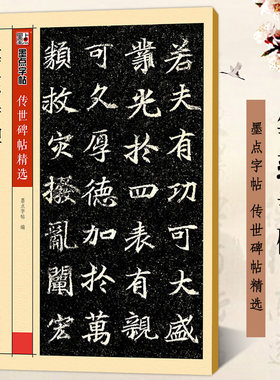 若夫有功可大盛
業光於四表有親
可久厚德加於萬
類救灾撥亂闡宏
墨点字帖
传世碑帖精选
墨点字帖 编
墨点字帖 传世碑帖精选